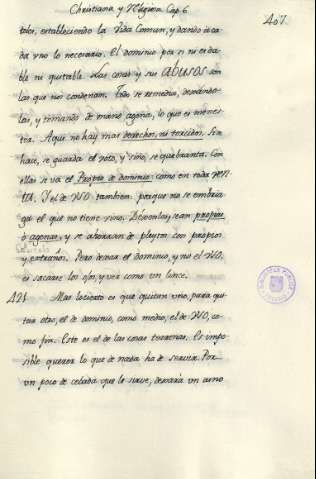 Christiana y Religiosa Cap. 6
407.
tales, estableciendo la Vida Comun, y dando à ca
da vno lo necesario. El dominio pa si ni es da
ble ni quitable. Las cosas y su ABUSOS son
las que nos condenan. Todo se remedia, dexando
las, y tomando de mano agena, lo que es menes
ter. Aqui no hay mas derechos, ni torcidos. Si se
hace, se guarda el voto, y sino, se quebranta. Con
ellas se va el Proprio de dominio: como en toda VEN
TA. Y el de VSO tambien: porque no se embria
ga el que no tiene vino. Dexenlas, sean proprias
ò agenas, y se ahorran de pleytos con proprios
y extraños. Pero dexar el dominio, y no el VSO,
es sacarse los ojos, y ver como un lince.
421. Mas locuras es que quitan vno, para qui
tar otro, el de dominio, como medio, el de VSO, co
mo fin. Este es el de las cosas terrenas. Es impo
sible querer lo que de nada ha de servir. Por
un poco de cebada que le sirve, dexarà un asno